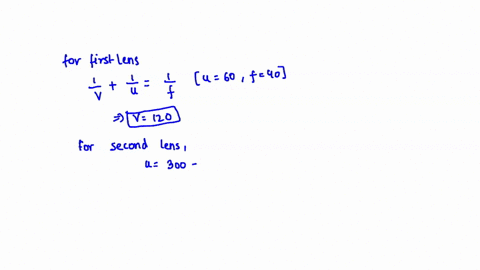 for first lens
1/V + 1/u = 1/f [u=60, f=40]
⇒ V=120
for second lens,
u= 300 -